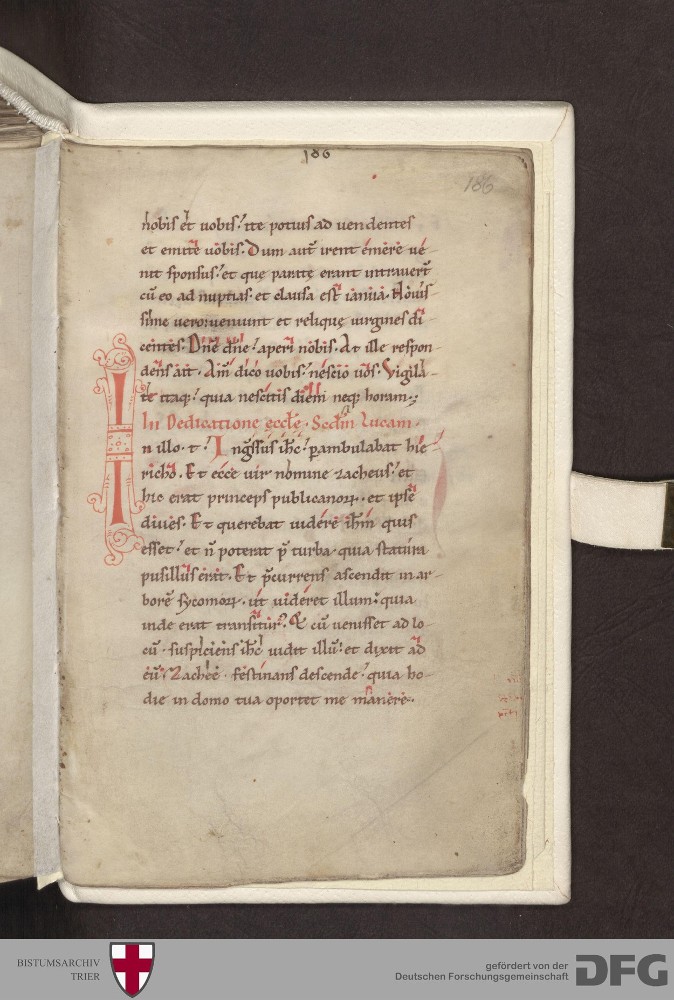 186
186
nobis et uobis. ite potius ad uendentes
et emite uobis. Dum aut̄ irent emere ue-
nit sponsus. et que paratę erant intrauer̄t
cū eo ad nuptias. et clausa est ianua. Nouis-
sime uero ueniunt et reliquę uirgines di-
centes. Dn̄e dn̄e. aperi nobis. At ille respon-
dens ait. Am̄ dico uobis. nescio uos. Vigila-
te itaq; quia nescitis diem neq; horam.
In Dedicatione ęccłę. Scdm̄ Lucam.
In illo. t. Ingressus ih̄c. ꝑambulabat hie-
richo. Et ecce uir nomine zacheus. et
hic erat princeps publicanoꝝ. et ipse
diues. Et querebat uidere ih̄m quis
esset. et n̄ poterat p̄ turba. quia statura
pusillus erat. Et p̄currens ascendit in ar-
borē sycomoꝝ. ut uideret illum. quia
inde erat transiturus. Et cū uenisset ad lo-
cū. suspiciens ih̄c uidit illū. et dixit ad
eū. Zachee. festinans descende. quia ho-
die in domo tua oportet me manere.
BISTUMSARCHIV
TRIER
gefördert von der
Deutschen Forschungsgemeinschaft
DFG